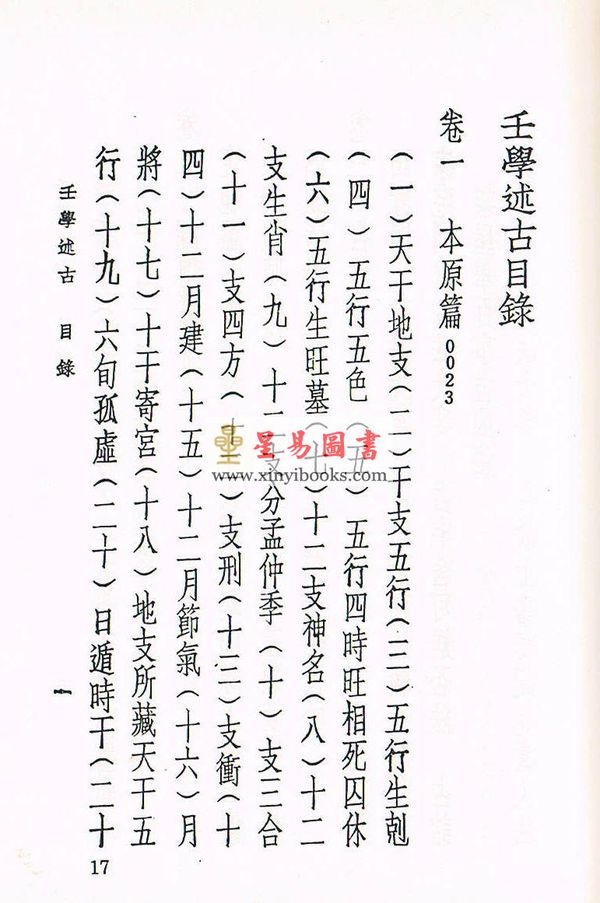 壬學述古目錄
卷一　本原篇0023
（一）天干地支（二）干支五行（三）五行生剋
（四）五行五色（五）五行四時旺相死囚休
（六）五行生旺墓（七）十二支神名（八）十二
支生肖（九）十二支分孟仲季（十）支三合
（十一）支四方（十二）支刑（十三）支衝（十
四）十二月建（十五）十二月節氣（十六）月
將（十七）十干寄宮（十八）地支所藏天干五
行（十九）六旬孤虛（二十）日遁時干（二十
壬學述古　目錄
一
17
星易圖書
www.xinyibooks.com